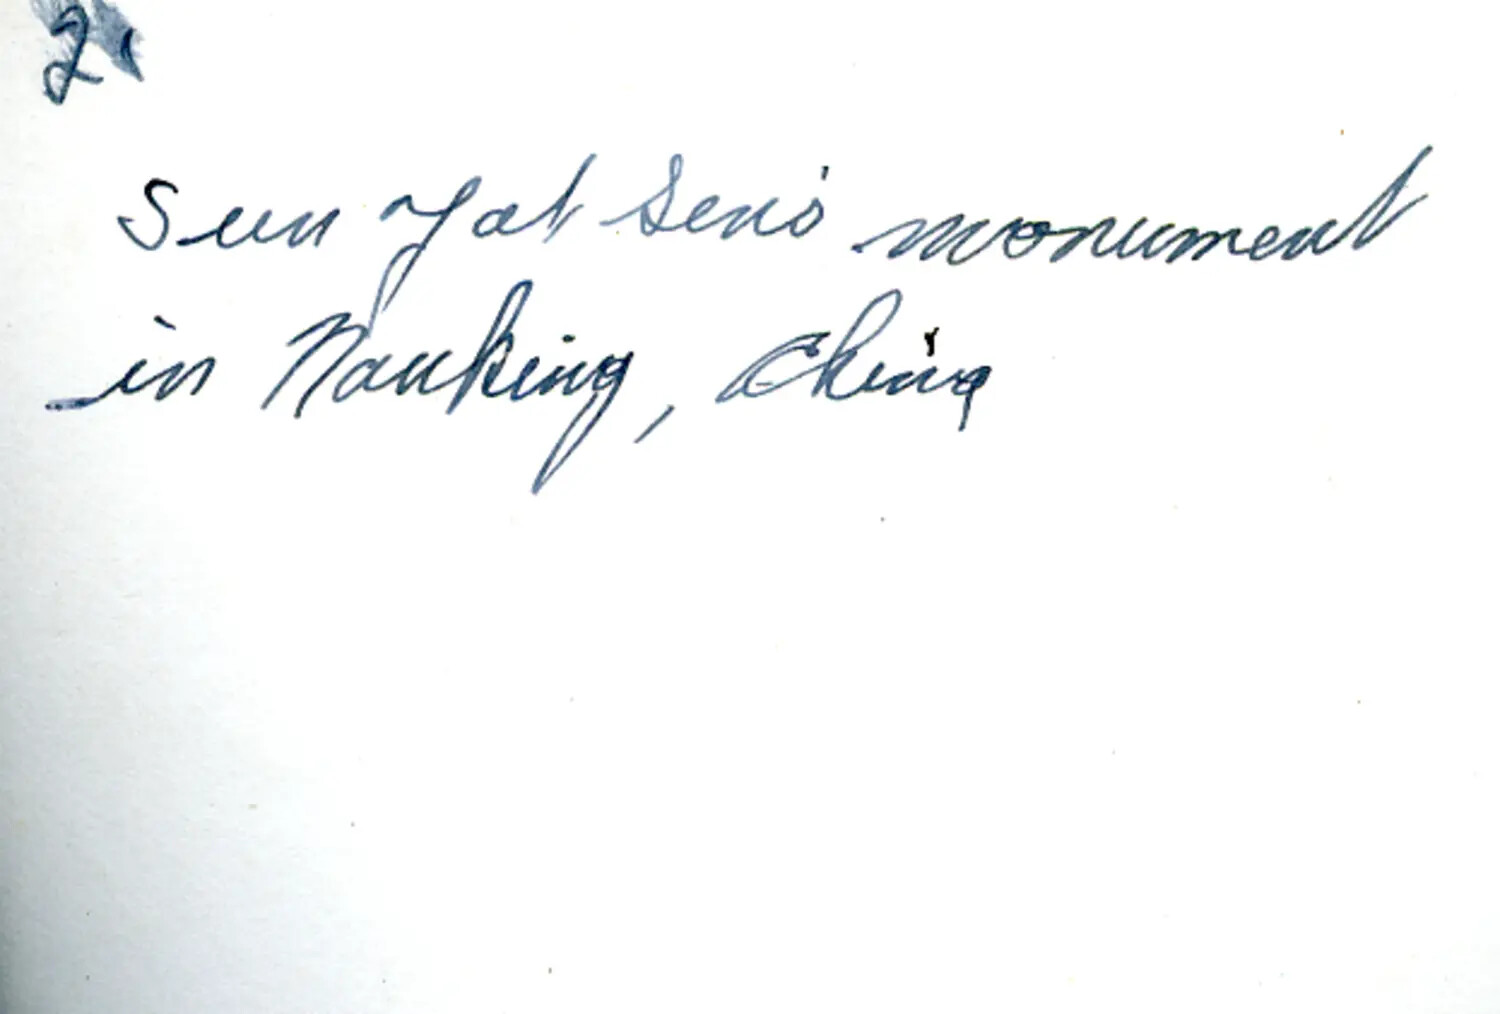 2.
Sun Yat Sen's monument
in Nanking, China